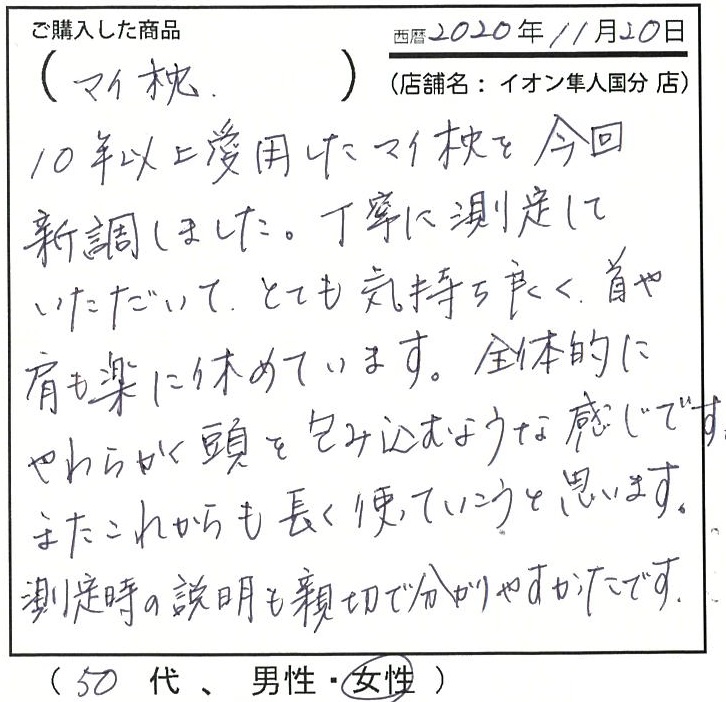 ご購入した商品
西暦2020年11月20日
(マイ枕.)
(店舗名：イオン隼人国分 店)
10年以上愛用したマイ枕を今回
新調しました。丁寧に測定して
いただいて、とても気持ち良く、首や
肩も楽に休めています。全体的に
やわらかく頭を包み込むような感じです。
またこれからも長く使っていこうと思います。
測定時の説明も親切で分かりやすかったです.
(50 代、男性・女性)